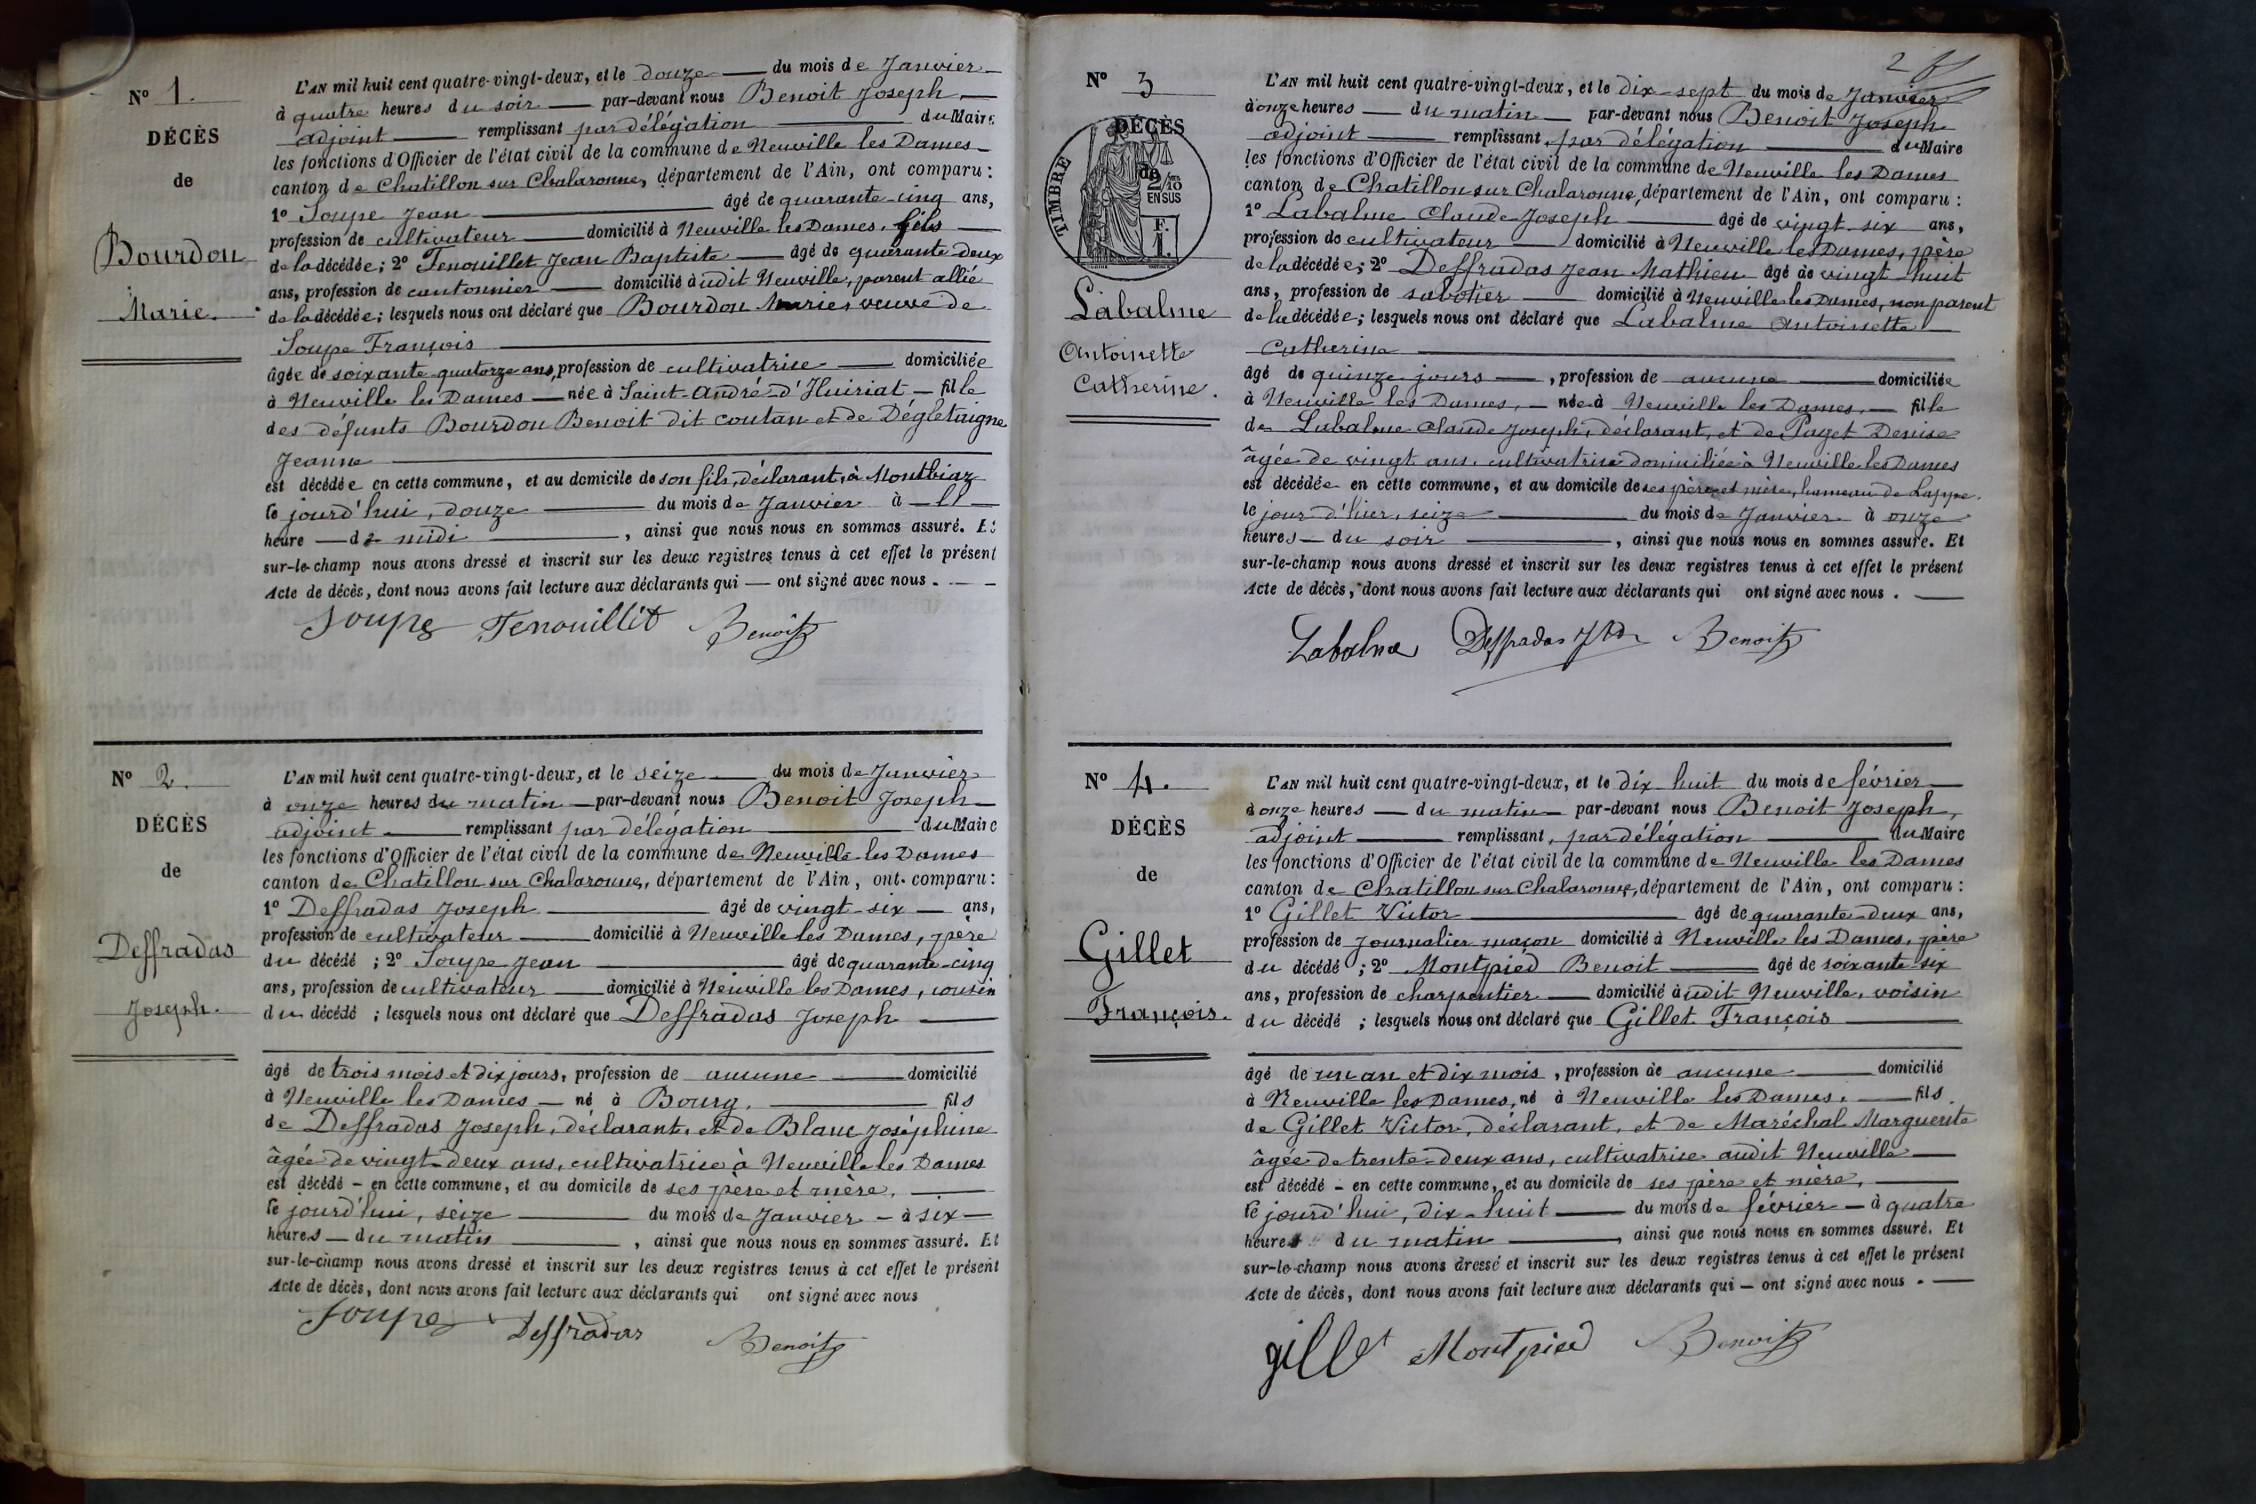 N° 1.
DÉCÈS
de
Bourdon
Marie.
L'AN mil huit cent quatre-vingt-deux, et le douze du mois de Janvier
à quatre heures du soir par-devant nous Benoit Joseph
adjoint remplissant par délégation du Maire
les fonctions d'Officier de l'état civil de la commune de Neuville les Dames
canton de Chatillon sur Chalaronne, département de l'Ain, ont comparu :
1° Soupe Jean âgé de quarante-cinq ans,
profession de cultivateur domicilié à Neuville les Dames, fils
de la décédée ; 2° Tenouillet Jean Baptiste âgé de quarante deux
ans, profession de cantonnier domicilié àudit Neuville, parent allié
de la décédée ; lesquels nous ont déclaré que Bourdon Marie, veuve de
Soupe François
âgée de soixante quatorze ans, profession de cultivatrice domiciliée
à Neuville les Dames née à Saint-André-d'Huiriat fille
des défunts Bourdon Benoit dit coutan et de Dégletaigne
Jeanne
est décédée en cette commune, et au domicile de son fils, déclarant, à Montbiaz
le jourd'hui, douze du mois de Janvier à
heure de midi, ainsi que nous nous en sommes assuré. Et
sur-le-champ nous avons dressé et inscrit sur les deux registres tenus à cet effet le présent
Acte de décès, dont nous avons fait lecture aux déclarants qui ont signé avec nous.
Soupe Tenouillet Benoit
N° 2.
DÉCÈS
de
Deffradas
Joseph.
L'AN mil huit cent quatre-vingt-deux, et le seize du mois de Janvier
à onze heures du matin par-devant nous Benoit Joseph
adjoint remplissant par délégation du Maire
les fonctions d'Officier de l'état civil de la commune de Neuville les Dames
canton de Chatillon sur Chalaronne, département de l'Ain, ont comparu :
1° Deffradas Joseph âgé de vingt-six ans,
profession de cultivateur domicilié à Neuville les Dames, père
du décédé ; 2° Soupe Jean âgé de quarante-cinq
ans, profession de cultivateur domicilié à Neuville les Dames, cousin
du décédé ; lesquels nous ont déclaré que Deffradas Joseph
âgé de trois mois et dix jours, profession de aucune domicilié
à Neuville les Dames né à Bourg, fils
de Deffradas Joseph, déclarant, et de Blanc Joséphine
âgée de vingt-deux ans, cultivatrice à Neuville les Dames
est décédé en cette commune, et au domicile de ses père et mère,
le jourd'hui, seize du mois de Janvier à six
heures du matin, ainsi que nous nous en sommes assuré. Et
sur-le-champ nous avons dressé et inscrit sur les deux registres tenus à cet effet le présent
Acte de décès, dont nous avons fait lecture aux déclarants qui ont signé avec nous
Soupe Deffradas Benoit
2
N° 3
DÉCÈS
de
TIMBRE
2/10
EN SUS
F.
1.
Labalme
Antoinette
Catherine.
L'AN mil huit cent quatre-vingt-deux, et le dix-sept du mois de Janvier
à onze heures du matin par-devant nous Benoit Joseph
adjoint remplissant par délégation du Maire
les fonctions d'Officier de l'état civil de la commune de Neuville les Dames
canton de Chatillon sur Chalaronne, département de l'Ain, ont comparu :
1° Labalme Claude Joseph âgé de vingt-six ans,
profession de cultivateur domicilié à Neuville les Dames, père
de la décédée ; 2° Deffradas Jean Mathieu âgé de vingt-huit
ans, profession de sabotier domicilié à Neuville les Dames, non parent
de la décédée ; lesquels nous ont déclaré que Labalme Antoinette
Catherine
âgé de quinze jours, profession de aucune domiciliée
à Neuville les Dames, née à Neuville les Dames, fille
de Labalme Claude Joseph, déclarant, et de Paget Denise
âgée de vingt ans, cultivatrice domiciliée à Neuville les Dames
est décédée en cette commune, et au domicile de ses père et mère, hameau de Lappe.
le jour d'hier, seize du mois de Janvier à onze
heures du soir, ainsi que nous nous en sommes assuré. Et
sur-le-champ nous avons dressé et inscrit sur les deux registres tenus à cet effet le présent
Acte de décès, dont nous avons fait lecture aux déclarants qui ont signé avec nous.
Labalme Deffradas Benoit
N° 4.
DÉCÈS
de
Gillet
François.
L'AN mil huit cent quatre-vingt-deux, et le dix huit du mois de février
à onze heures du matin par-devant nous Benoit Joseph,
adjoint remplissant, par délégation du Maire
les fonctions d'Officier de l'état civil de la commune de Neuville les Dames
canton de Chatillon sur Chalaronne, département de l'Ain, ont comparu :
1° Gillet Victor âgé de quarante-deux ans,
profession de journalier maçon domicilié à Neuville les Dames, père
du décédé ; 2° Montpied Benoit âgé de soixante-six
ans, profession de charpentier domicilié àudit Neuville, voisin
du décédé ; lesquels nous ont déclaré que Gillet François
âgé de un an et dix mois, profession de aucune domicilié
à Neuville les Dames, né à Neuville les Dames, fils
de Gillet Victor, déclarant, et de Maréchal Marguerite
âgée de trente-deux ans, cultivatrice audit Neuville
est décédé en cette commune, et au domicile de ses père et mère,
le jourd'hui, dix-huit du mois de février à quatre
heures du matin, ainsi que nous nous en sommes assuré. Et
sur-le-champ nous avons dressé et inscrit sur les deux registres tenus à cet effet le présent
Acte de décès, dont nous avons fait lecture aux déclarants qui ont signé avec nous.
gillet Montpied Benoit